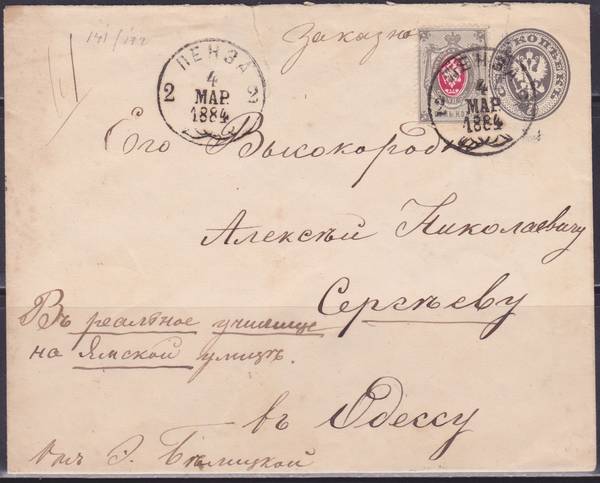 141/122
Заказно
ПЕНЗА
2 4 2
МАР.
1884
ПЕНЗА
4
2 МАР.
1884
КОПѢЕКЪ
Его Высокород
Алексѣй Николаевичу
Сергѣеву
Въ реальное училище
на Ямской улицѣ.
въ Одессу
Э. Бѣлицкой